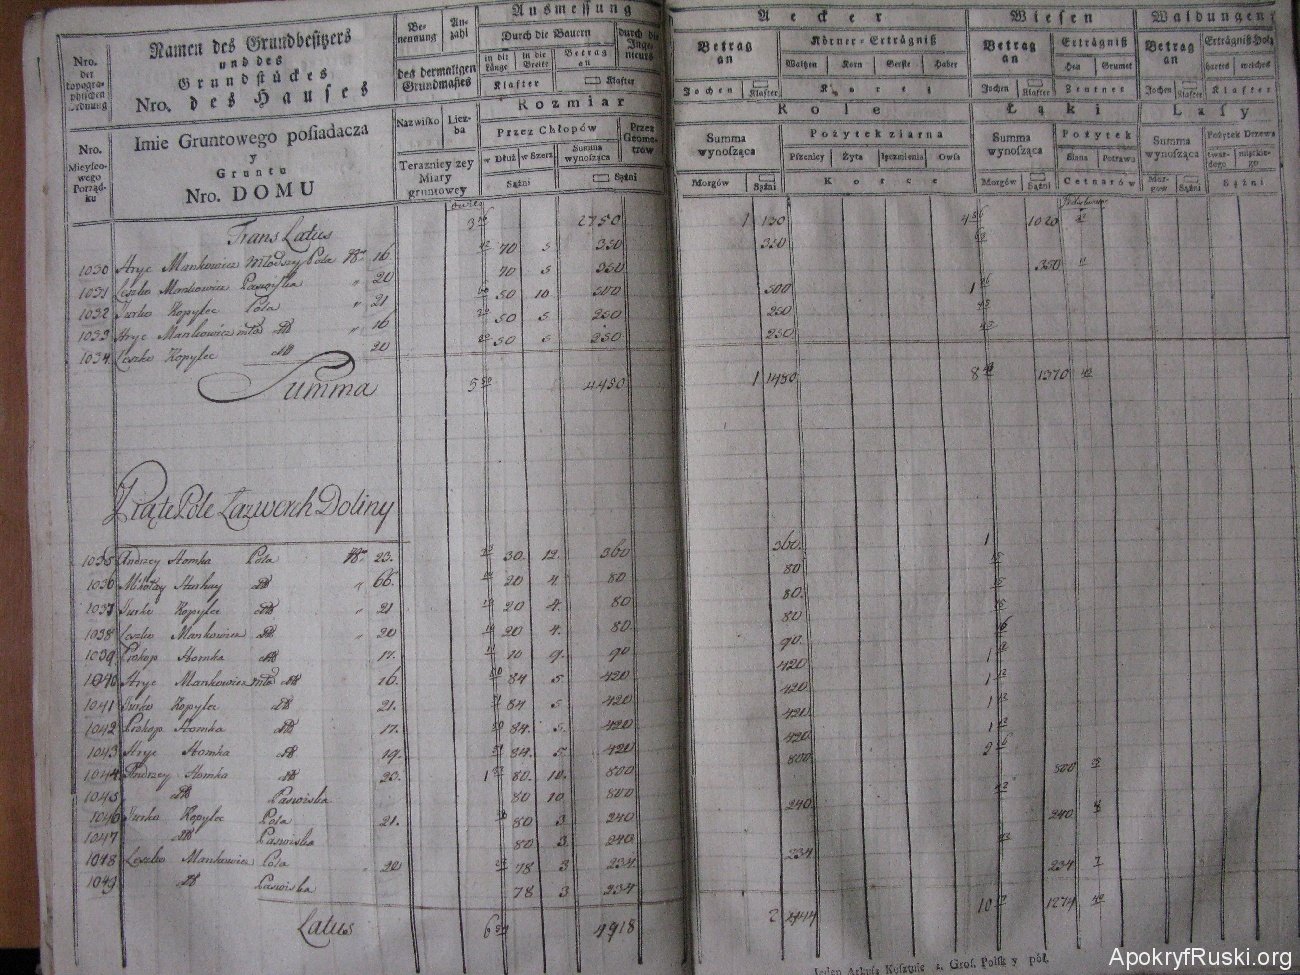 Nro. der topographischen Ordnung
Namen des Grundbesitzers
und des
Grundstückes
Nro. des Hauses
Benennung
Anzahl
des dermaligen Grundmaßes
Ausmessung
Durch die Bauern
durch die Ingenieurs
in die Länge
in die Breite
Betrag an
Klafter
Klafter
Aecker
Betrag an
Körner-Erträgniß
Waitzen Korn Gerste Haber
Jochen Klafter
Koretz
Wiesen
Betrag an
Erträgniß
Heu Grumet
Jochen Klafter
Zentner
Waldungen
Betrag an
Erträgniß Holz
hartes weiches
Jochen Klafter
Klafter
Nro. Mieyscowego Porządku
Imie Gruntowego posiadacza
y
Gruntu
Nro. DOMU
Nazwisko
Liczba
Teraznieyszey Miary gruntowey
Rozmiar
Przez Chłopów
Przez Geometrów
w Dłuż
w Szerz
Summa wynosząca
Sążni
Sążni
Role
Summa wynosząca
Pożytek ziarna
Pszenicy Żyta Jęczmienia Owsa
Morgów Sążni
Korce
Łąki
Summa wynosząca
Pożytek
Siana Potrawu
Morgów Sążni
Cetnarów
Lasy
Summa wynosząca
Pożytek Drzewa
twardego miętkiego
Morgow Sążni
Sążni
Trans Latus 2750 1 130 1020
1030 Hryc Mankowicz młodszy Pola Nro 16 70 5 350 350
1031 Leszko Mankowicz Paswiska " 20 70 5 350 350
1032 Jurko Kopylec Pola " 21 50 10 500 500
1033 Hryc Mankowicz mło. " 16 50 5 250 250
1034 Leszko Kopylec 20 50 5 250 250
Summa 4450 1 1480 1370
Piąte Pole Łazwerch Doliny
1035 Andrzey Homka Pola Nro 23. 30. 12. 360 360. 1
1036 66. 20 4. 80 80
1037 Jurko Kopylec 21 20 4. 80 80.
1038 Leszko Mankowicz " 20 20 4. 80. 80
1039 Prokop Homka 17. 10 9. 90 90.
1040 Hryc Mankowicz mło. 16. 84 5. 420 420
1041 Jurko Kopylec 21. 84 5 420 420
1042 Prokop Homka 17. 84. 5. 420 420
1043 Hryc Homka 19. 84. 5. 420 420
1044 Andrzey Homka 23. 80. 10. 800 800
1045 Paswiska 80 10 800 800
1046 Jurko Kopylec Pola 21. 80 3 240 240
1047 Paswiska 80 3 240 240
1048 Leszko Mankowicz Pola " 20 78 3 234 234
1049 Paswiska 78 3 234 234
Latus 4918 2 444 1274
ApokryfRuski.org